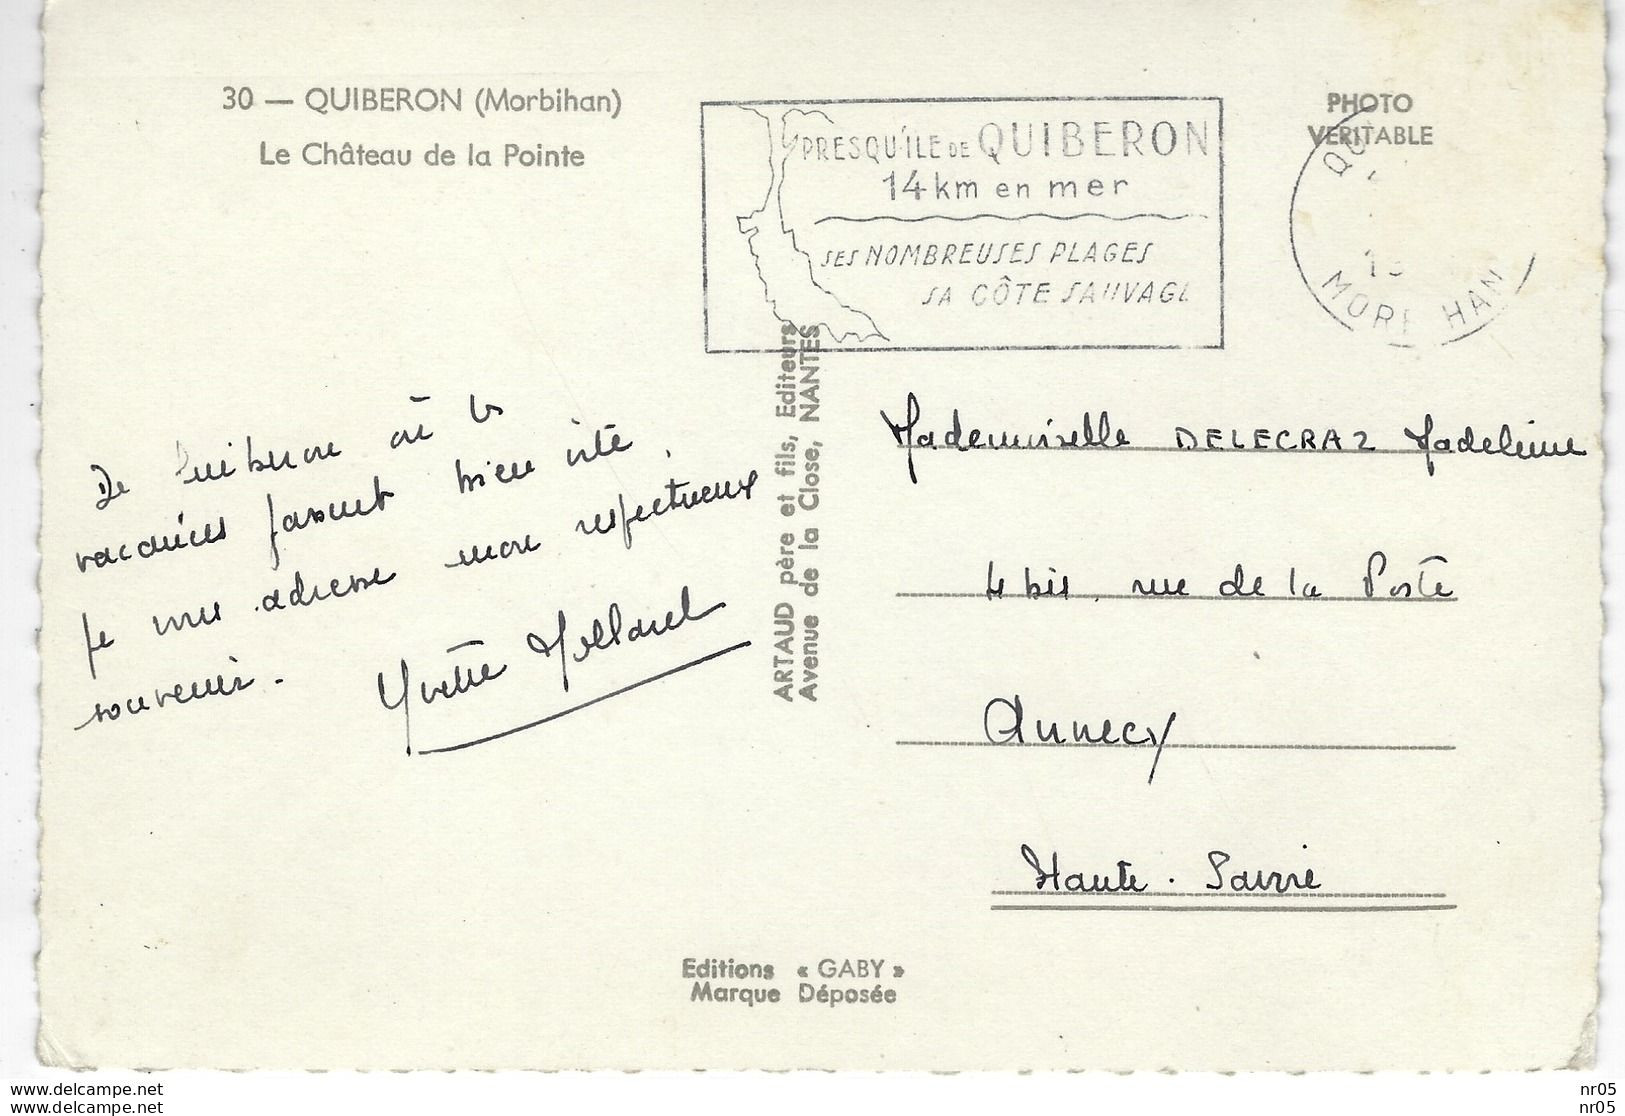 30 — QUIBERON (Morbihan)
Le Château de la Pointe
PRESQU'ÎLE DE QUIBERON
14 km en mer
SES NOMBREUSES PLAGES
SA CÔTE SAUVAGE
PHOTO
VERITABLE
QU
MORBIHAN
De Quiberon où les
vacances passent bien vite,
je vous adresse mon respectueux
souvenir.
Yvette Mollard
ARTAUD père et fils, Editeurs
Avenue de la Close, NANTES
Mademoiselle DELECRAZ Madeleine
4 bis, rue de la Poste
Annecy
Haute-Savoie
Editions « GABY »
Marque Déposée
www.delcampe.net
www.delcampe.net
nr05
nr05